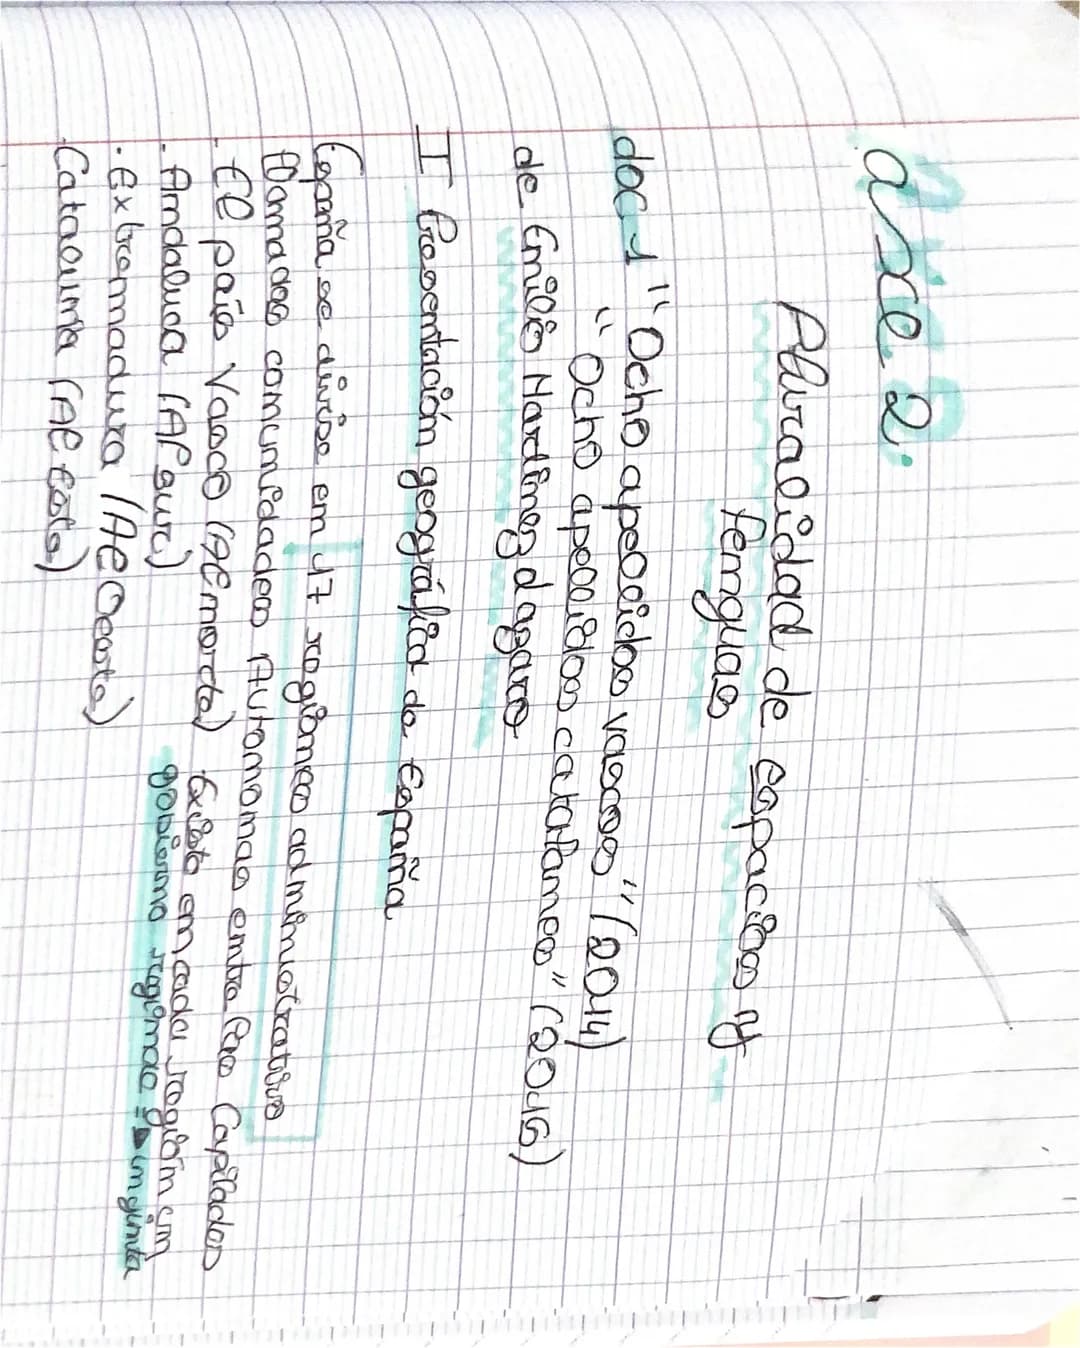 axe 2.
Pluralidad de espacios y
lenguas
doc 1 "Ocho apellidos vascos" (2014)
"Ocho apellidos catalanes" (2015)
de Emilio Martinez dazaro
I Presentación geográfica de España
España se divise en 17 regiones administrativo
llamadas comunidades Autonomas entre las Capitales
. El país Vasco (Al norte) Existe en cada región un
. Andaluca (Al sur) gobierno regional =>
. Extramadura (Al Oeste)
. Cataluna (Al Este)